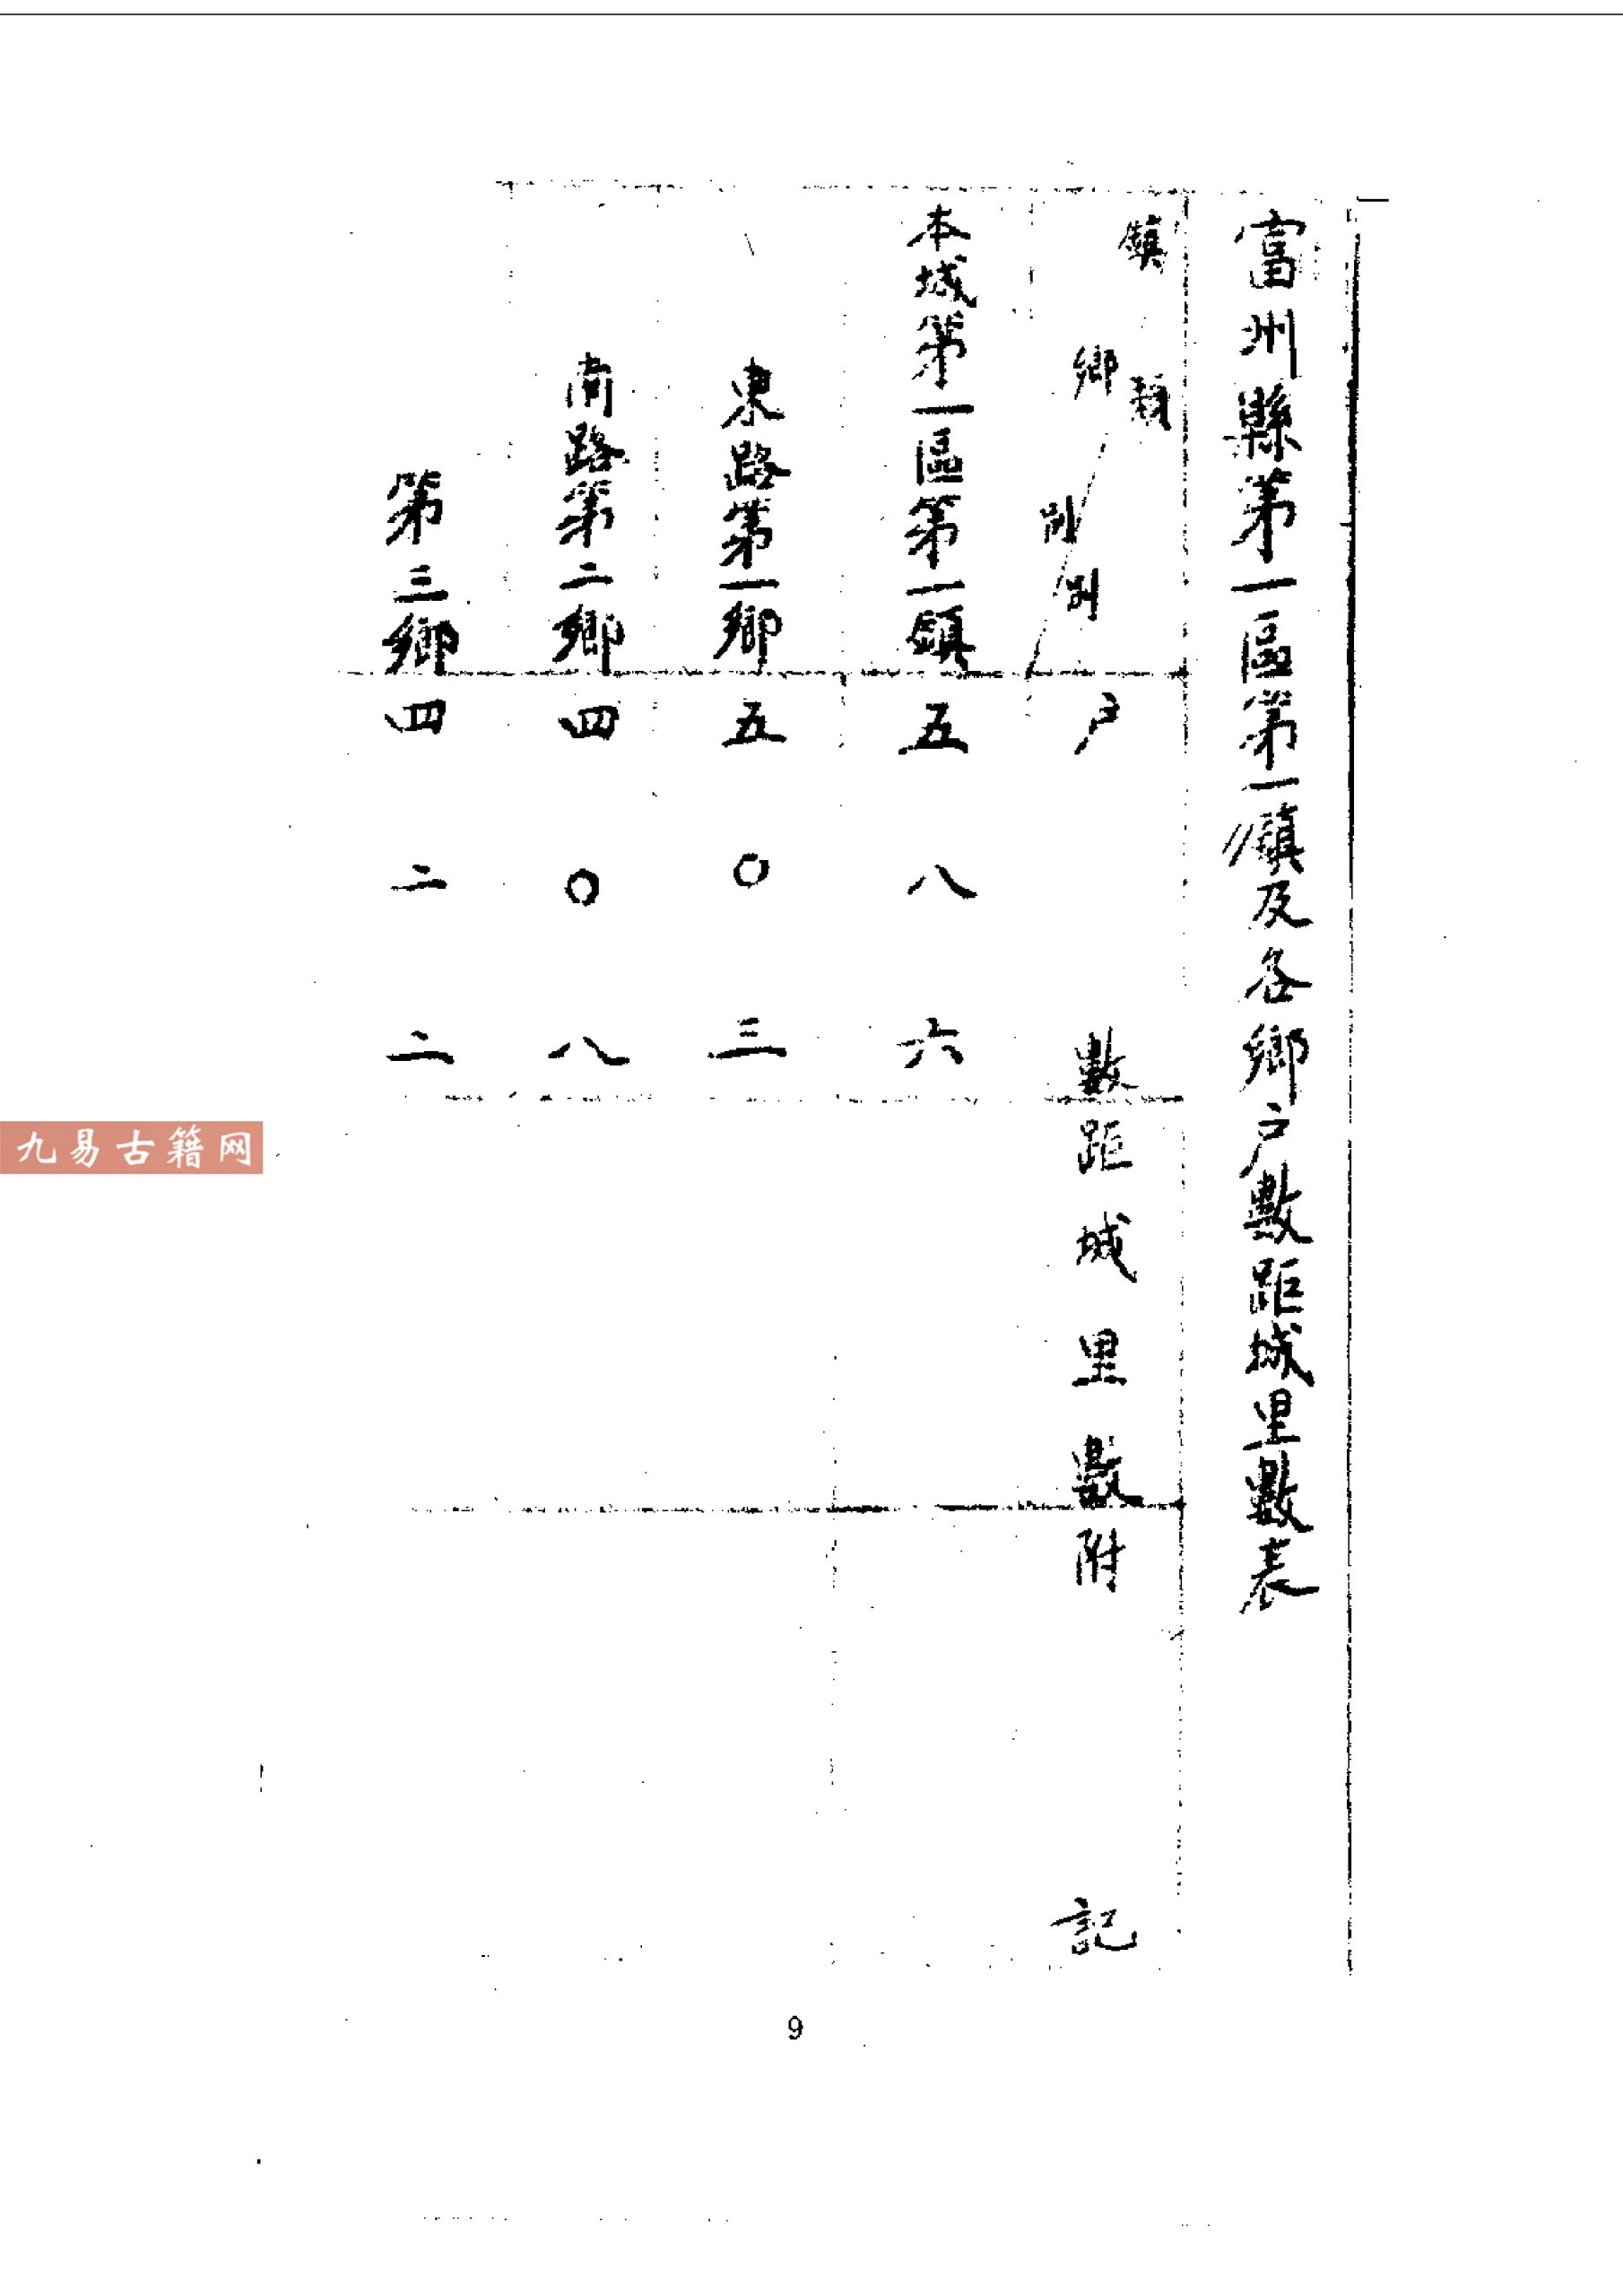 富州縣第一區第一鎮及各鄉戶數距城里數表
鎮鄉別
類別
戶數
距城里數
附記
本城第一區第一鎮 五八六
東路第一鄉 五〇三
南路第二鄉 四〇八
第三鄉 四二二
九易古籍网
9